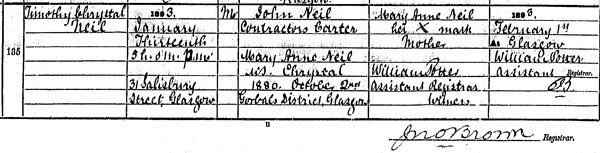 135
Timothy Chrystal
Neil
1883.
January
Thirteenth
5h. 0m. P.m.
31 Salisbury
Street, Glasgow
M
John Neil
Contractors Carter
Mary Anne Neil
m.s. Chrystal
1880. October 2nd
Gorbals District, Glasgow
Mary Anne Neil
her X mark
Mother
William Potter
Assistant Registrar
witness
1883.
February 1st
At Glasgow
William Potter
Assistant Registrar.
JnoBrown Registrar.